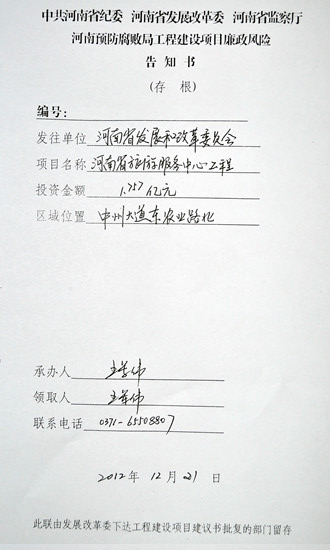 中共河南省纪委 河南省发展改革委 河南省监察厅
河南预防腐败局工程建设项目廉政风险
告知书
(存根)
编号:
发往单位 河南省发展和改革委员会
项目名称 河南省旅游服务中心工程
投资金额 1.757亿元
区域位置 中州大道东农业路北
承办人
领取人
联系电话 0371-65508807
2012年12月21日
此联由发展改革委下达工程建设项目建议书批复的部门留存